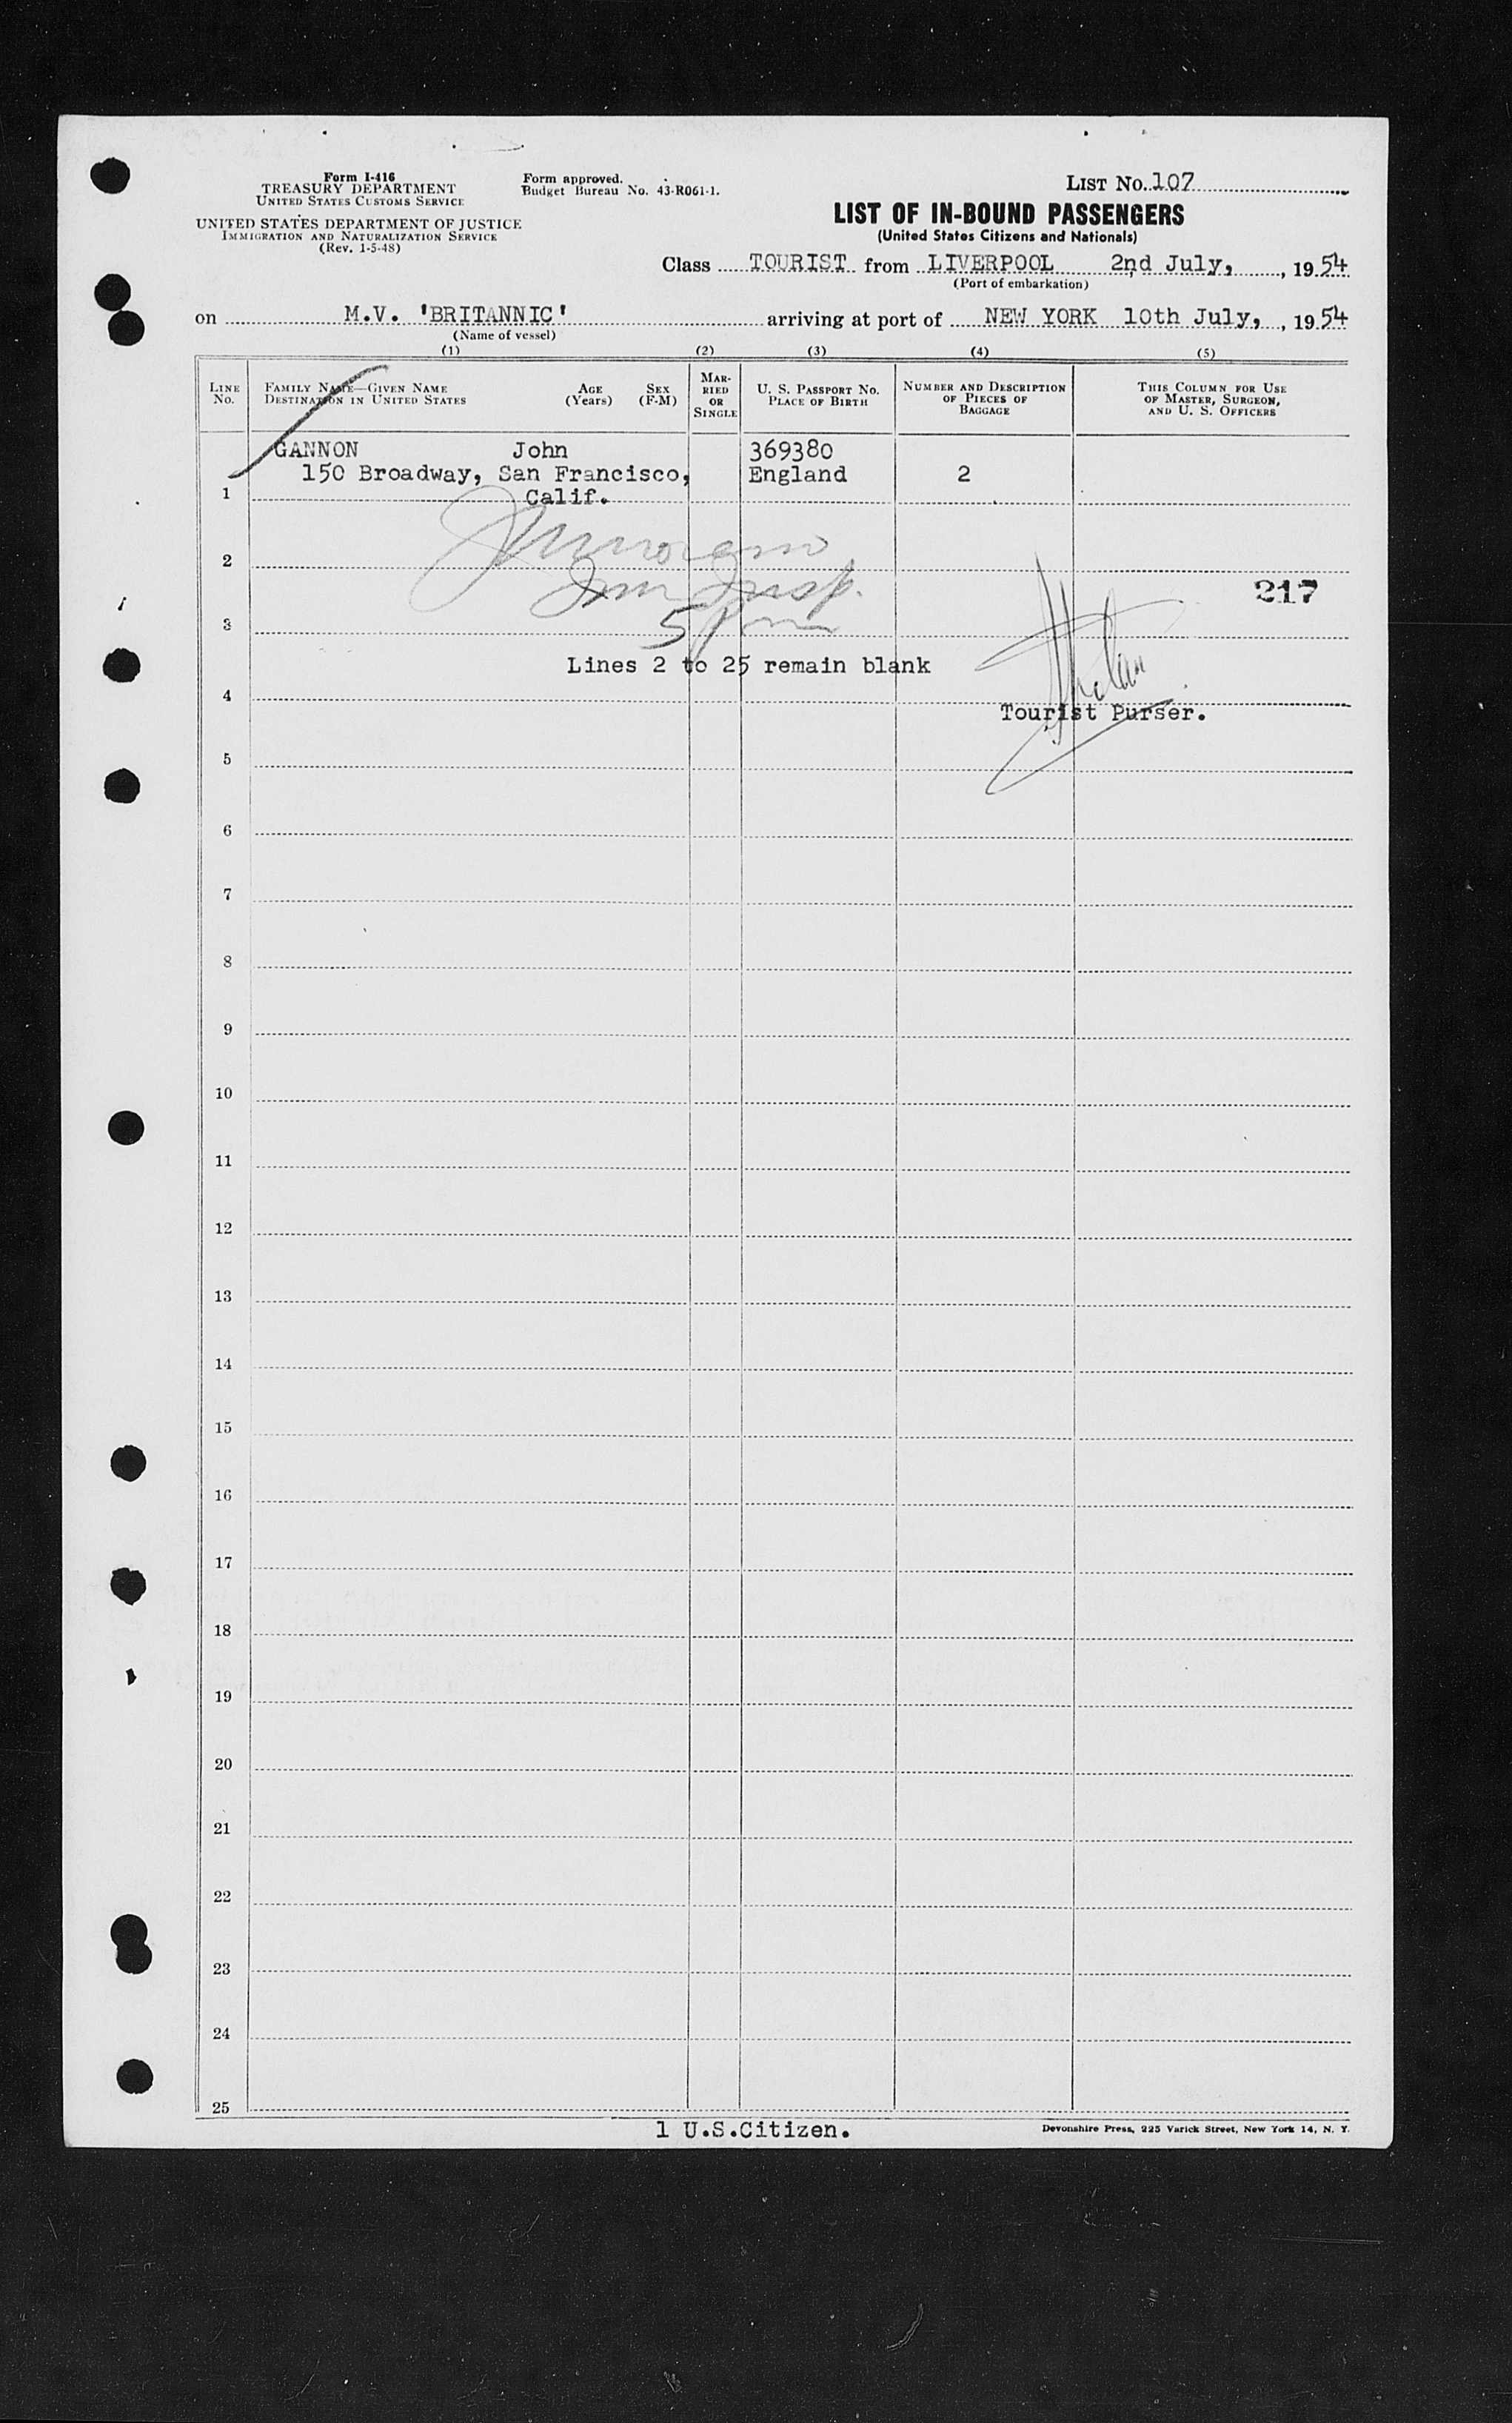 Form I-416
TREASURY DEPARTMENT
UNITED STATES CUSTOMS SERVICE
UNITED STATES DEPARTMENT OF JUSTICE
IMMIGRATION AND NATURALIZATION SERVICE
(Rev. 1-5-48)
Form approved.
Budget Bureau No. 43-R061-1.
LIST NO. 107
LIST OF IN-BOUND PASSENGERS
(United States Citizens and Nationals)
Class TOURIST from LIVERPOOL 2nd July, , 19 54
(Port of embarkation)
on M.V. 'BRITANNIC' arriving at port of NEW YORK 10th July, , 19 54
(Name of vessel)
(1) (2) (3) (4) (5)
LINE No.
FAMILY NAME—GIVEN NAME
DESTINATION IN UNITED STATES
AGE (Years)
SEX (F-M)
MARRIED OR SINGLE
U. S. PASSPORT NO.
PLACE OF BIRTH
NUMBER AND DESCRIPTION OF PIECES OF BAGGAGE
THIS COLUMN FOR USE OF MASTER, SURGEON, AND U. S. OFFICERS
GANNON John 369380
150 Broadway, San Francisco, England 2
1 Calif.
2
Imm Insp.
217
3
Lines 2 to 25 remain blank
4
Tourist Purser.
5
6
7
8
9
10
11
12
13
14
15
16
17
18
19
20
21
22
23
24
25
1 U.S.Citizen.
Devonshire Press, 225 Varick Street, New York 14, N. Y.